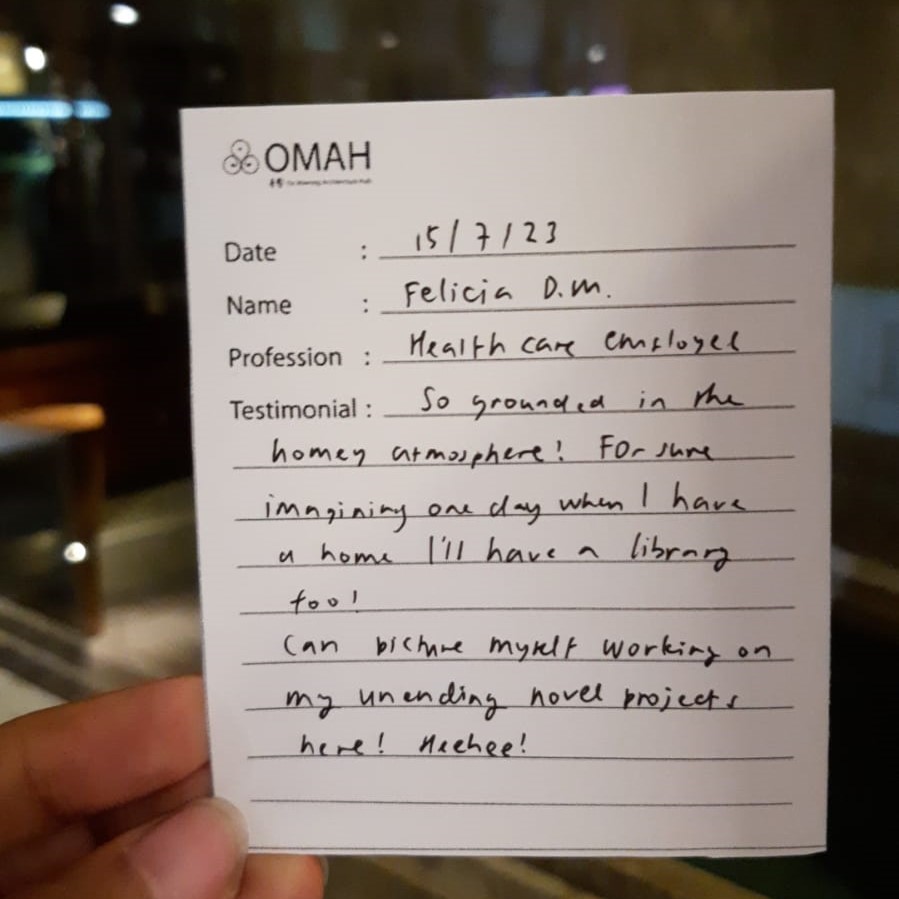 OMAH
Date : 15/7/23
Name : Felicia D.M.
Profession : Health care employee
Testimonial : So grounded in the
homey atmosphere! For sure
imagining one day when I have
a home I'll have a library
too!
Can picture myself working on
my unending novel projects
here! Heehee!